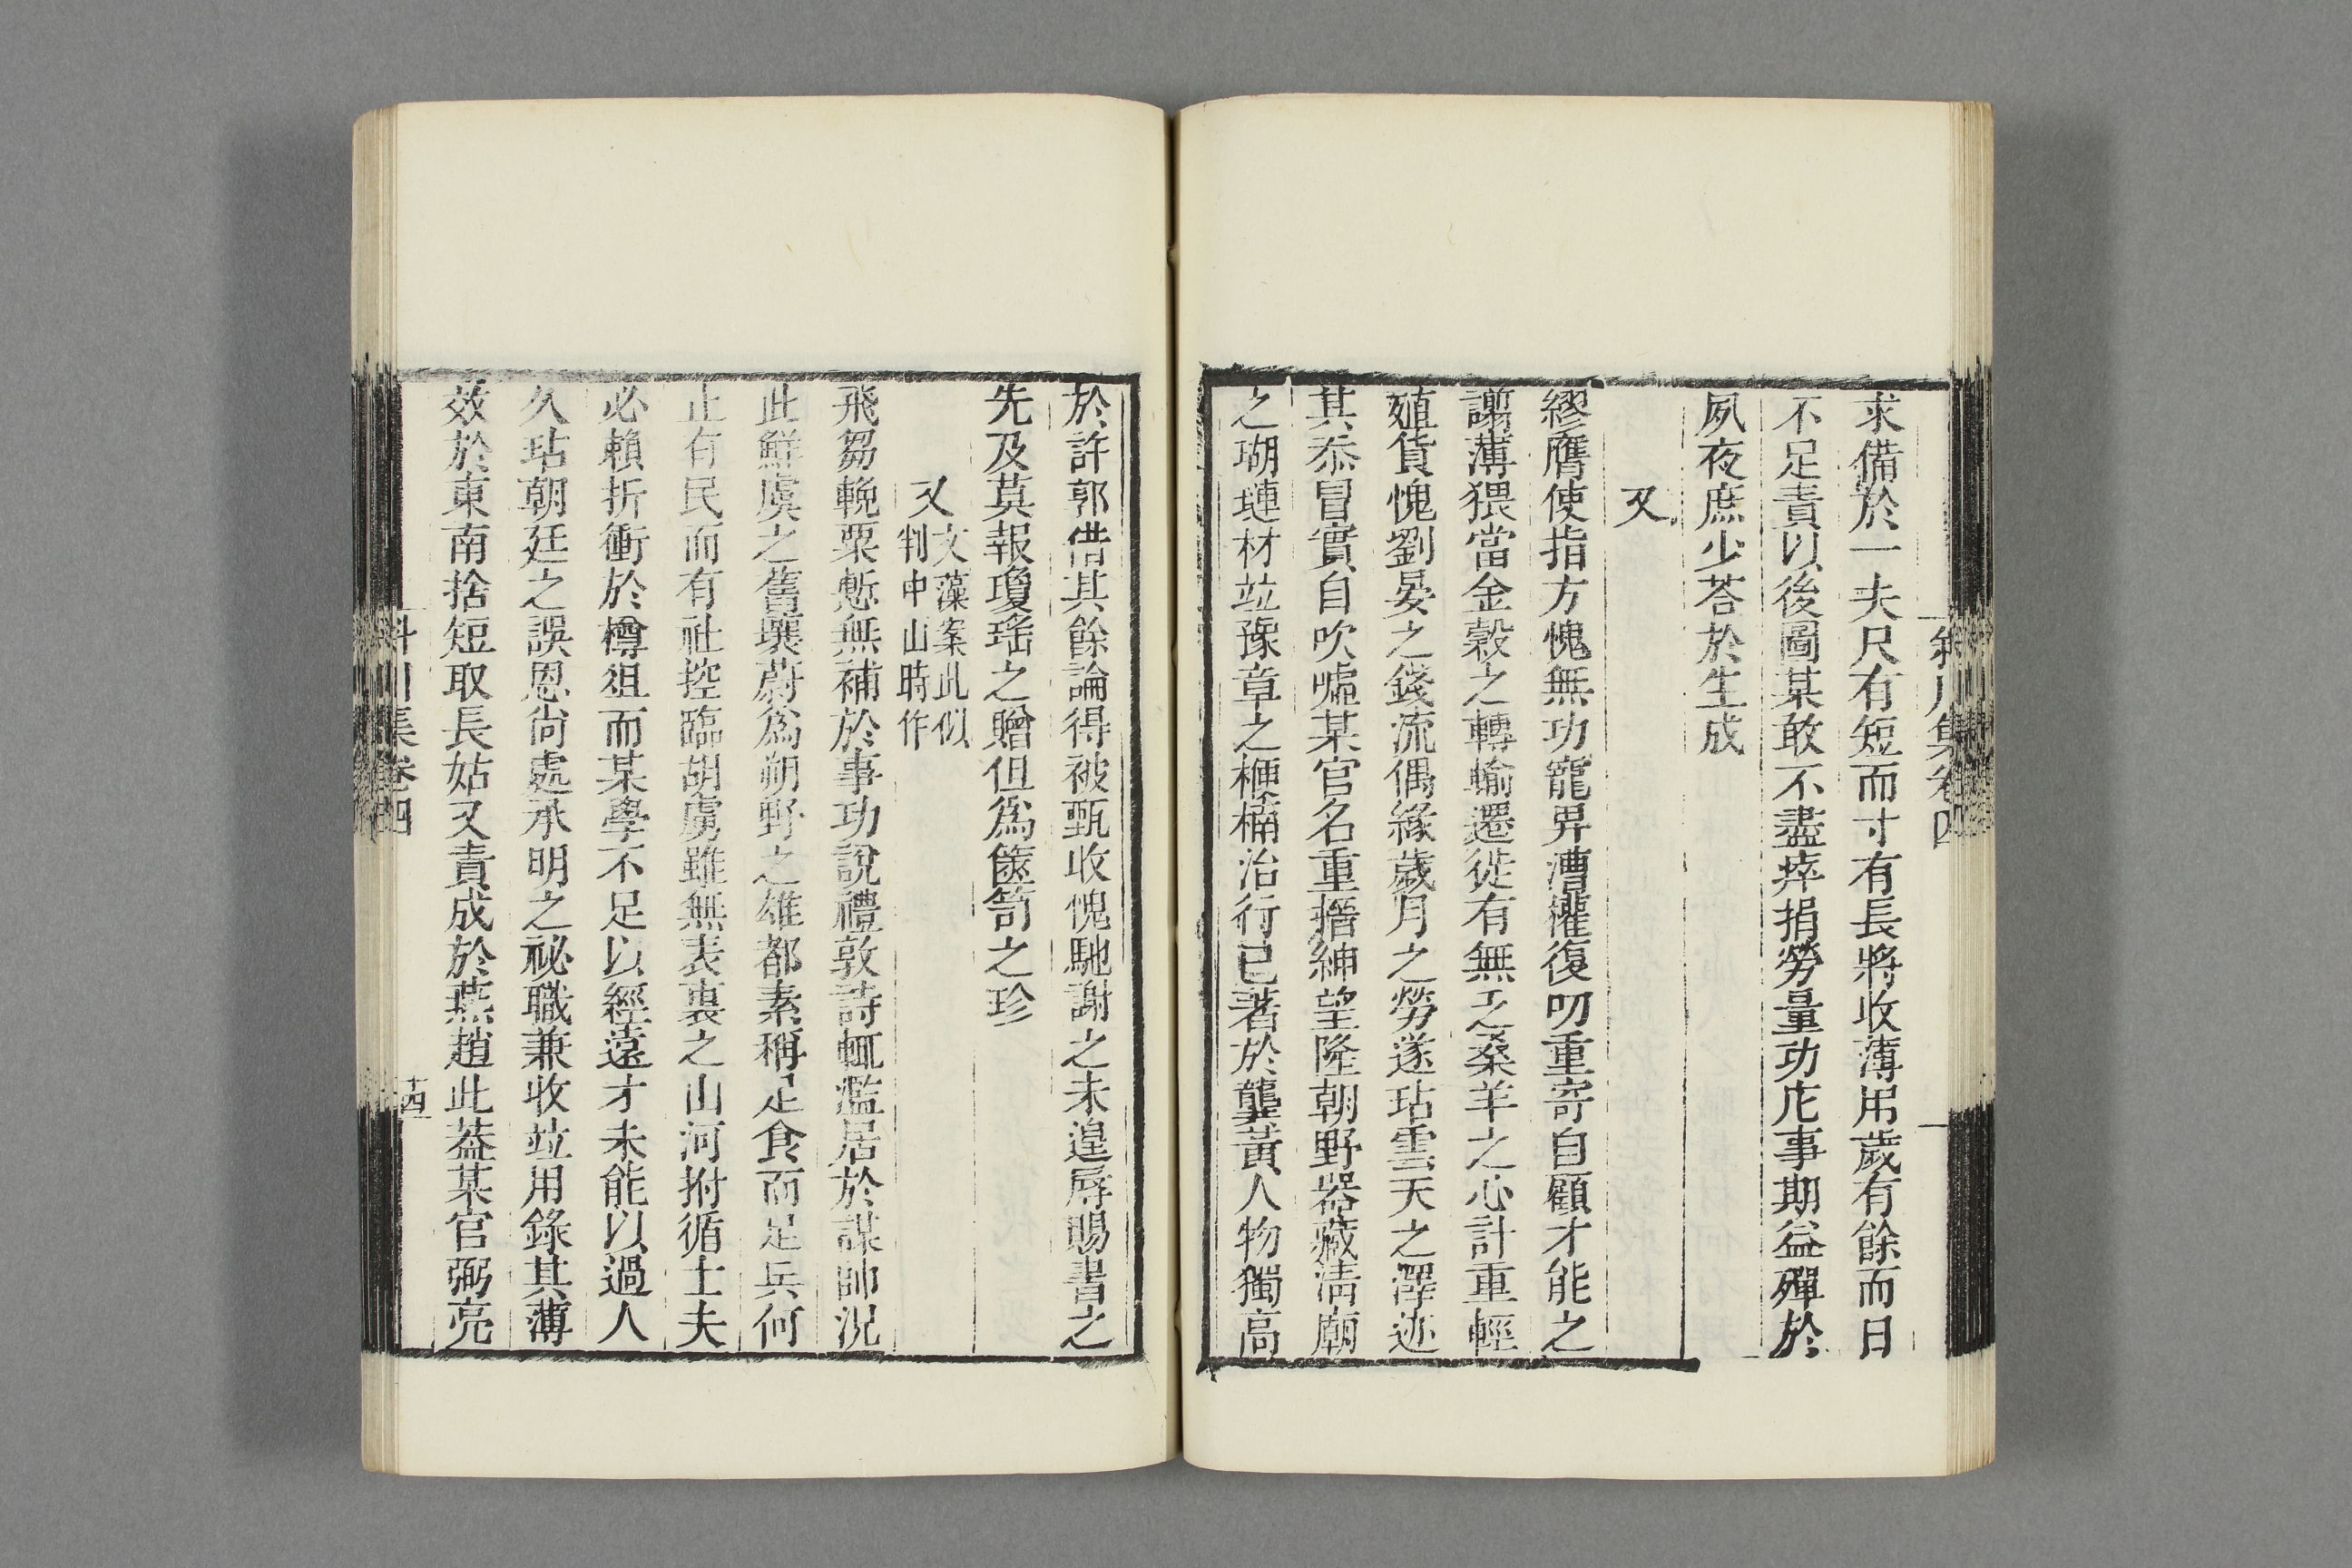 求備於一夫尺有短而寸有長將收薄用歲有餘而日
不足責以後圖某敢不盡瘁捐勞量功庀事期益殫於
夙夜庶少荅於生成
又
繆膺使指方愧無功寵畀漕權復叨重寄自顧才能之
謭薄猥當金穀之轉輸遷徙有無乏桑羊之心計重輕
殖貨愧劉晏之錢流偶緣歲月之勞遂玷雲天之澤迹
其忝冒實自吹噓某官名重搢紳望隆朝野器藏淸廟
之瑚璉材竝豫章之楩楠治行已著於龔黃人物獨高
於許郭借其餘論得被甄收愧馳謝之未遑辱賜書之
先及莫報瓊瑤之贈但爲篋笥之珍
又文藻案此似判中山時作
飛芻輓粟慙無補於事功說禮敦詩輒濫居於謀帥況
此鮮虞之舊壤蔚爲朔野之雄都素稱足食而足兵何
止有民而有社控臨胡虜雖無表裏之山河拊循士夫
必賴折衝於樽俎而某學不足以經遠才未能以過人
久玷朝廷之誤恩尙處承明之祕職兼收竝用錄其薄
效於東南捨短取長姑又責成於燕趙此葢某官弼亮
斜川集卷四
十四